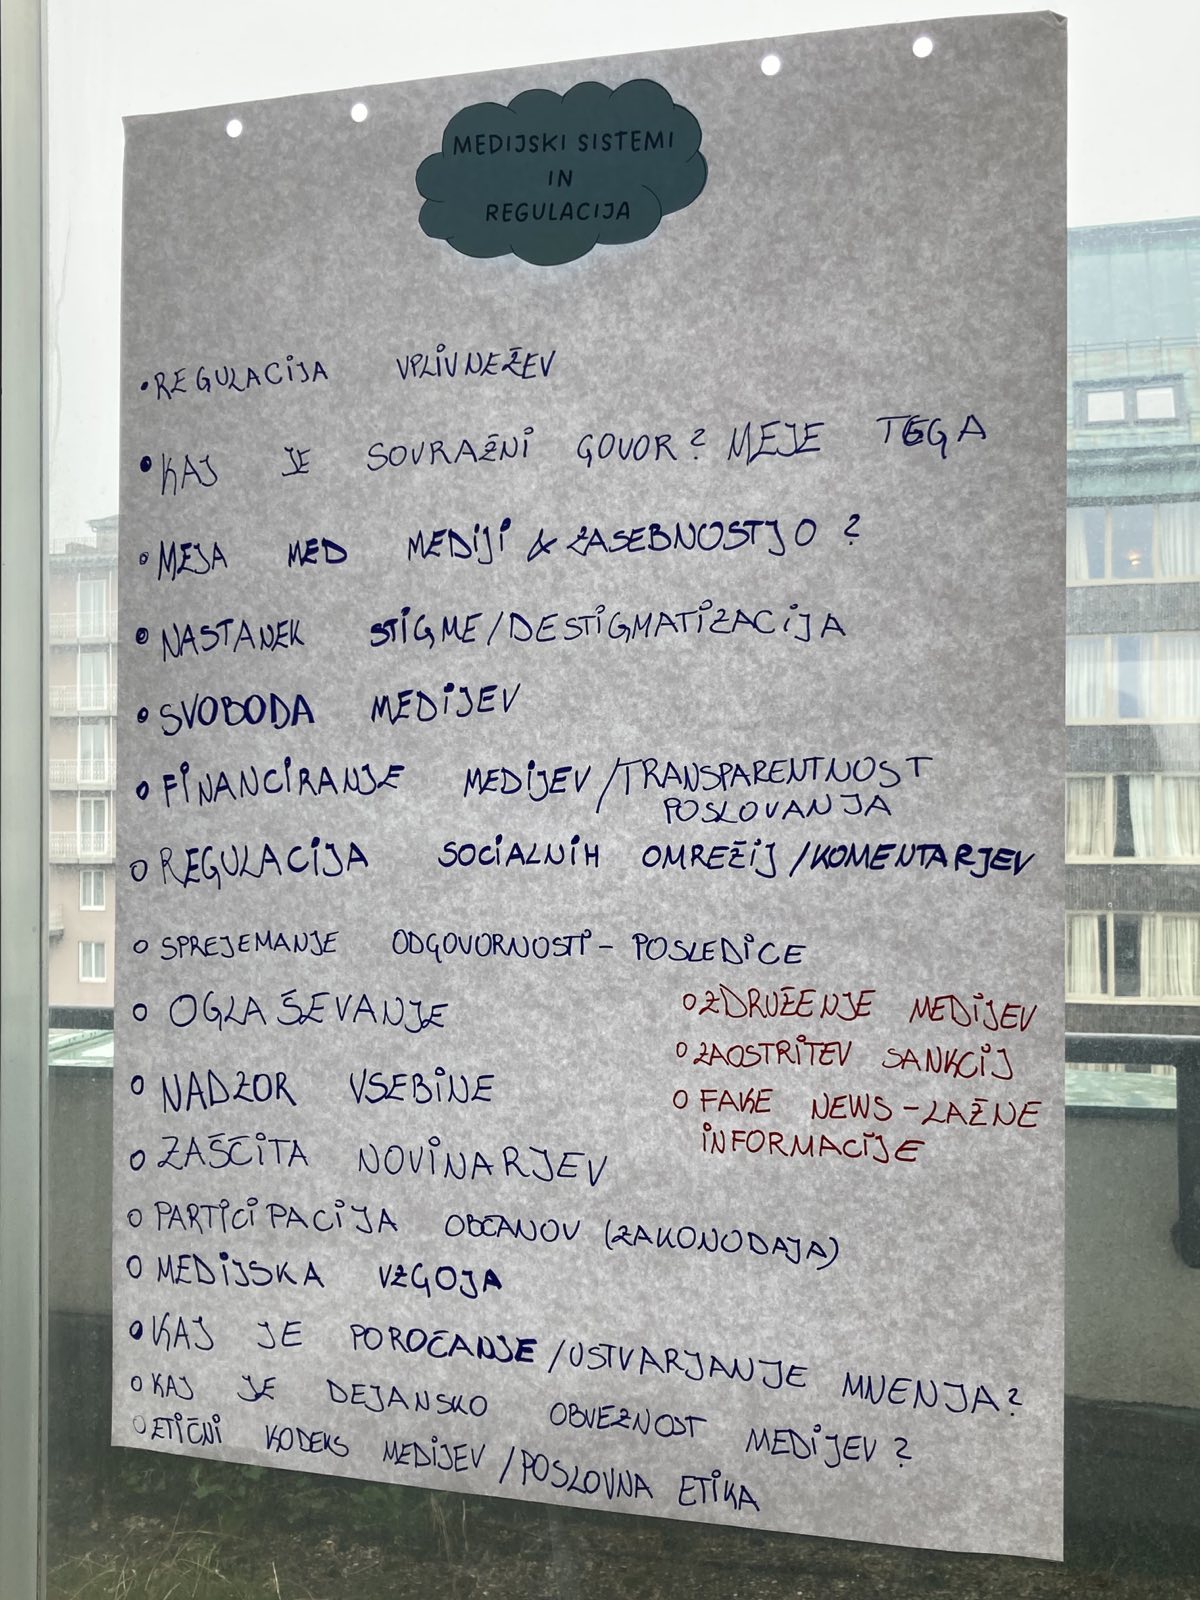 MEDIJSKI SISTEMI
IN
REGULACIJA
•REGULACIJA VPLIVNEŽEV
•KAJ JE SOVRAŽNI GOVOR? MEJE TEGA
•MEJA MED MEDIJI & ZASEBNOSTJO?
•NASTANEK STIGME/DESTIGMATIZACIJA
•SVOBODA MEDIJEV
•FINANCIRANJE MEDIJEV/TRANSPARENTNOST
POSLOVANJA
○REGULACIJA SOCIALNIH OMREŽIJ/KOMENTARJEV
○SPREJEMANJE ODGOVORNOSTI - POSLEDICE
○OGLAŠEVANJE
○NADZOR VSEBINE
○ZAŠČITA NOVINARJEV
○PARTICIPACIJA OBČANOV (ZAKONODAJA)
○MEDIJSKA VZGOJA
○KAJ JE POROČANJE/USTVARJANJE MNENJA?
○KAJ JE DEJANSKO OBVEZNOST MEDIJEV?
○ETIČNI KODEKS MEDIJEV/POSLOVNA ETIKA
○ZDRUŽENJE MEDIJEV
○ZAOSTRITEV SANKCIJ
○FAKE NEWS - LAŽNE
INFORMACIJE